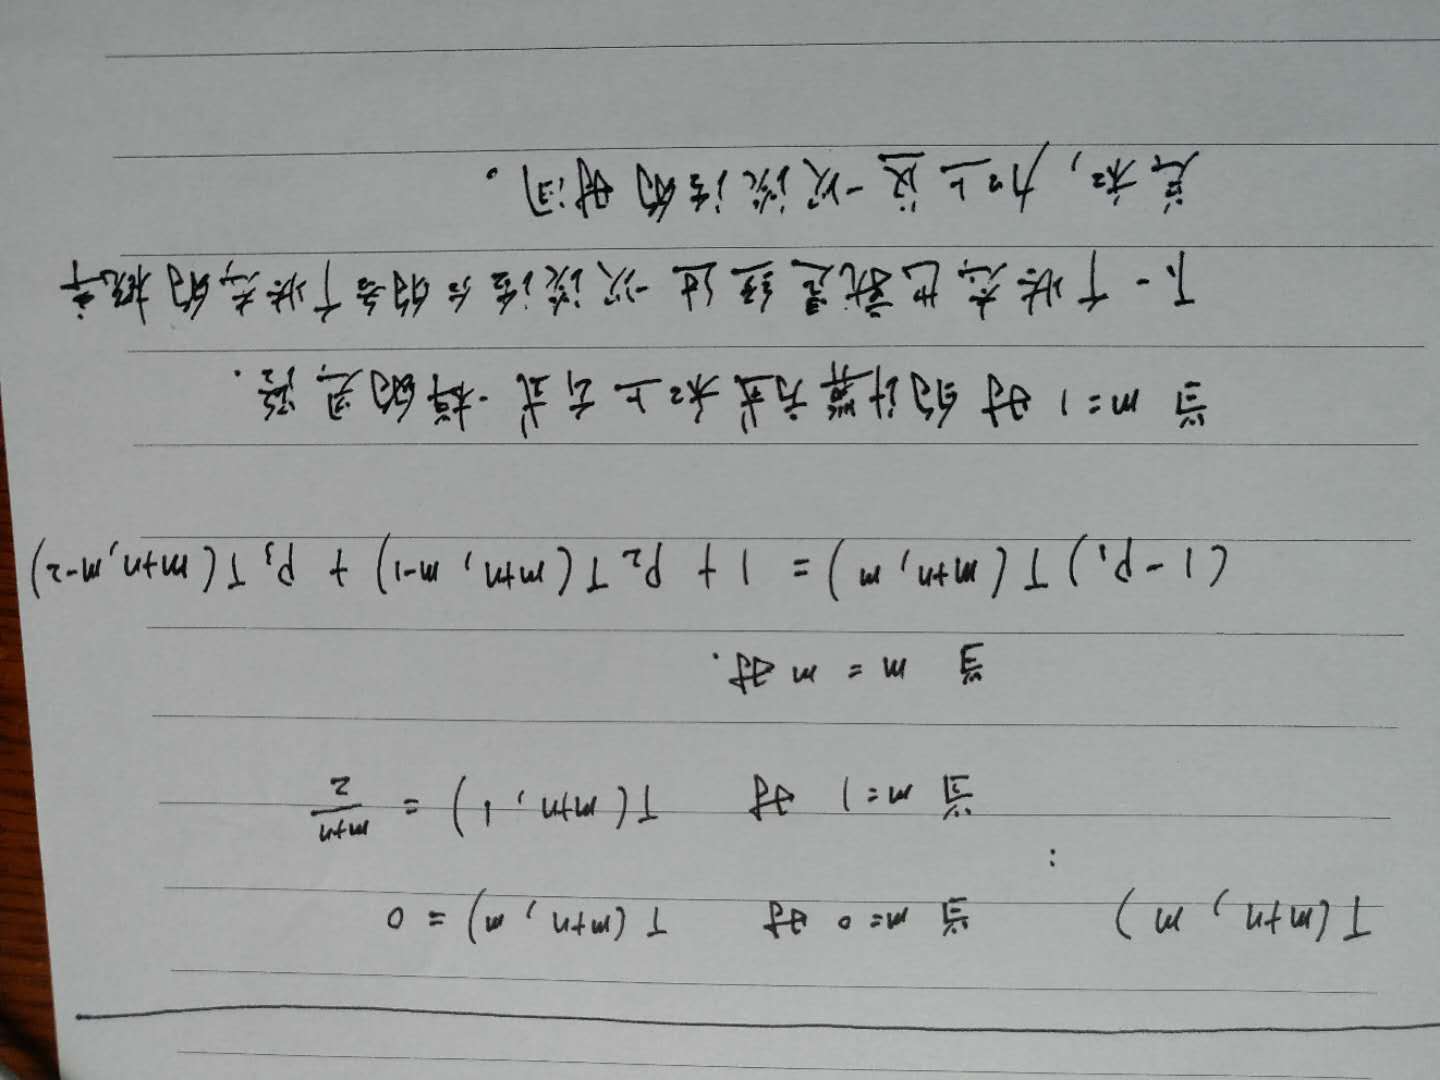 T(m+n, m) 当 m=0 时 T(m+n, m) = 0
:
当 m=1 时 T(m+n, 1) = \frac{m+n}{2}
当 m = m 时.
(1-P₁) T(m+n, m) = 1 + P₂ T(m+n, m-1) + P₃ T(m+n, m-2)
当 m=1 时 的计算方式和上右式一样的思路.
下一个状态也就是经过一次谈话后的各个状态的概率
之和,加上这一次谈话的时间。